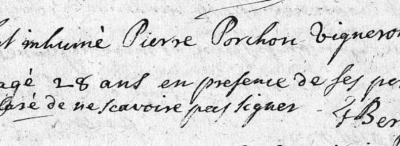 inhumé Pierre Porchon vigneron
agé 28 ans en presence de ses
de ne scavoire pas signer f Ber